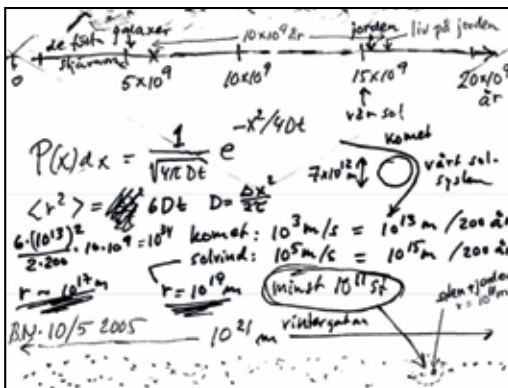 de första galaxer 10×10⁹ år jorden liv på jorden
stjärnorna
0 5×10⁹ 10×10⁹ 15×10⁹ 20×10⁹ år
vår sol
P(x)dx = 1/√(4πDt) e^(-x²/4Dt)
komet
7×10¹² m
vårt sol-
system
<r²> = 6Dt D = Δx²/2τ
6·(10¹³)²/2·200 ·10·10⁹ = 10³⁴
komet: 10³ m/s = 10¹³ m /200 år
solvind: 10⁵ m/s = 10¹⁵ m /200 år
r ~ 10¹⁷ m r = 10¹⁹ m
minst 10¹¹ st
solen+jorden
r = 10¹¹ m
BN. 10/5 2005
10²¹ m
vintergatan